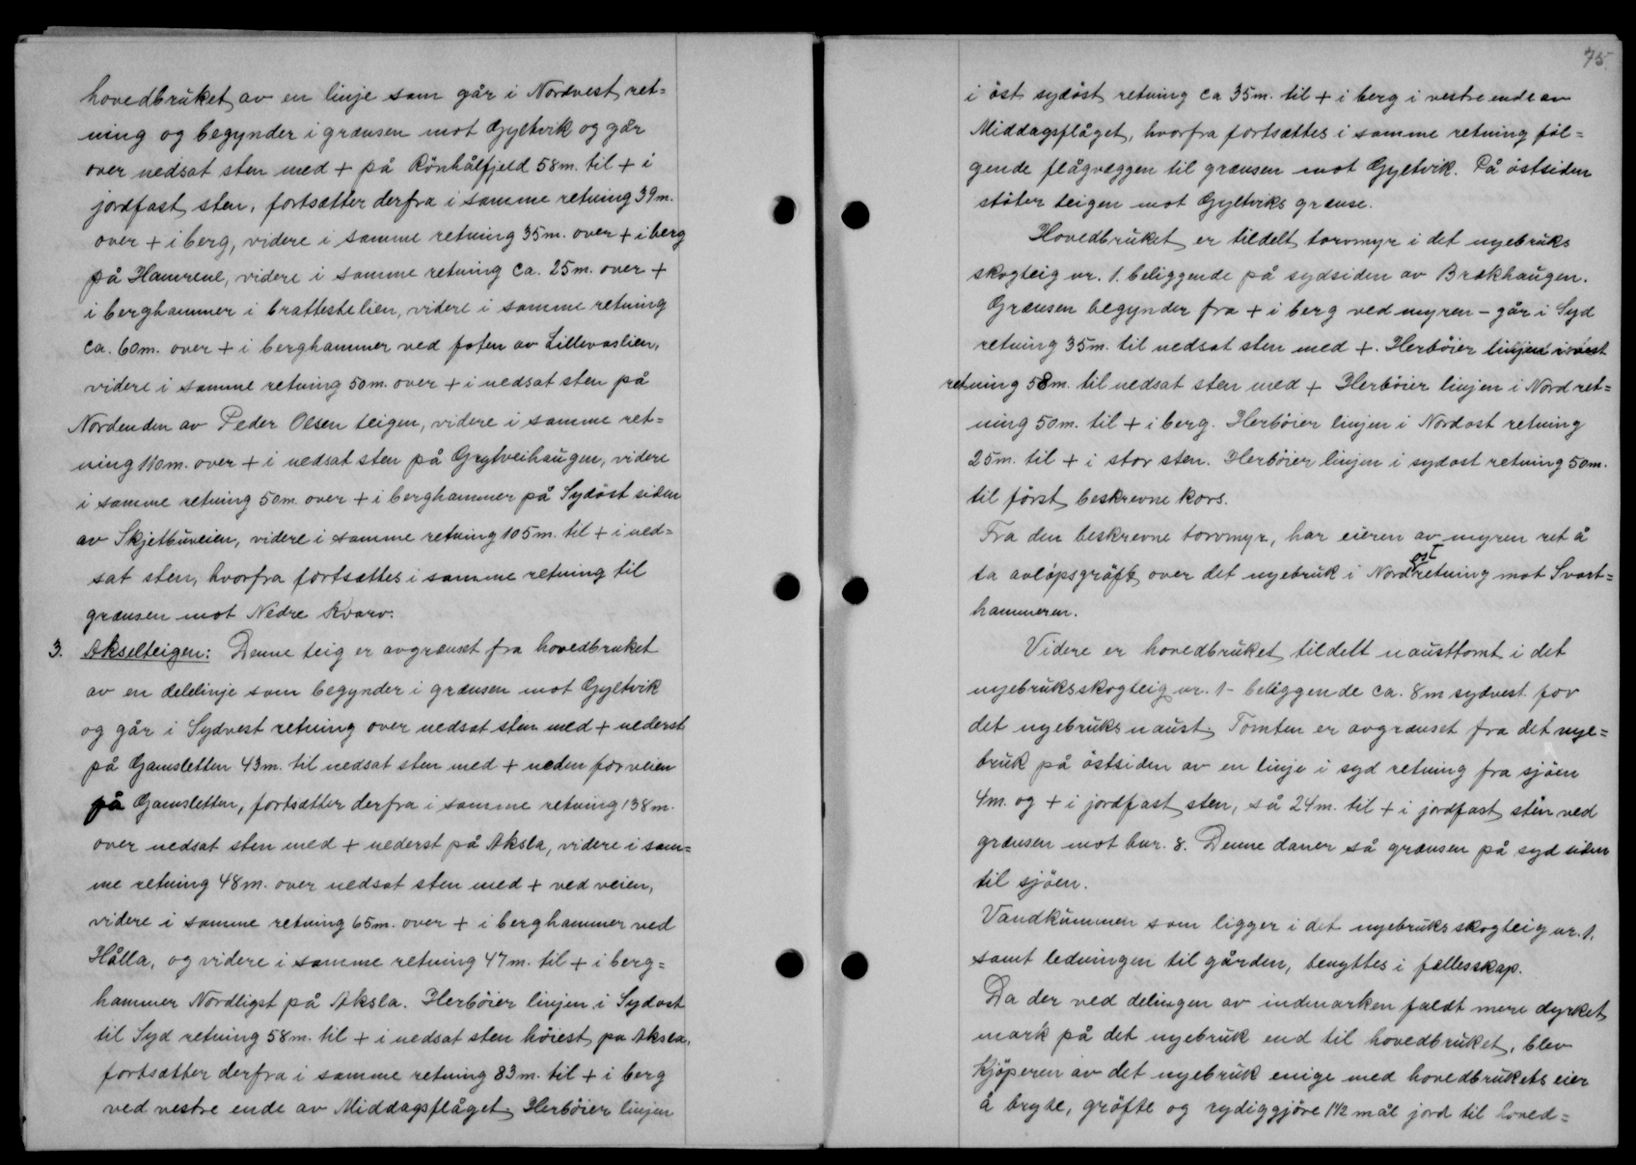 hovedbruket av en linje som går i Nordvest ret=
ning og begynder i grænsen mot Gyltvik og går
over nedsat sten med + på Rönhålfjeld 58m. til + i
jordfast sten, fortsætter derfra i samme retning 39m.
over + i berg, videre i samme retning 35m. over + i berg
på Hamrene, videre i samme retning ca. 25m. over +
i berghammer i brattestelien, videre i samme retning
ca. 60m. over + i berghammer ved foten av Lillevaslien,
videre i samme retning 50m. over + i nedsat sten på
Nordenden av Peder Olsen teigen, videre i samme ret=
ning 110m. over + i nedsat sten på Grytveihaugen, videre
i samme retning 50m. over + i berghammer på Sydöst siden
av Skjetbuveien, videre i samme retning 105m. til + i ned=
sat sten, hvorfra fortsættes i samme retning til
grænsen mot Nedre Kvarv.
3. Akselteigen: Denne teig er avgrænset fra hovedbruket
av en delelinje som begynder i grænsen mot Gyltvik
og går i Sydvest retning over nedsat sten med + nederst
på Gamsletten 43m. til nedsat sten med + neden for veien
på Gamsletten, fortsætter derfra i samme retning 138m.
over nedsat sten med + nederst på Aksla, videre i sam=
me retning 48m. over nedsat sten med + ved veien,
videre i samme retning 65m. over + i berghammer ved
Hålla, og videre i samme retning 47m. til + i berg=
hammer Nordligst på Aksla. Herböier linjen i Sydost
til Syd retning 58m. til + i nedsat sten höiest pa Aksla,
fortsætter derfra i samme retning 83m. til + i berg
ved vestre ende av Middagsflåget. Herböier linjen
75.
i öst sydöst retning ca 35m. til + i berg i vestre ende av
Middagsflåget, hvorfra fortsættes i samme retning föl=
gende flågvæggen til grænsen mot Gyltvik. På östsiden
stöter teigen mot Gyltviks grænse.
Hovedbruket er tildelt torvmyr i det nyebruks
skogteig nr. 1. beliggende på sydsiden av Brækhaugen.
Grænsen begynder fra + i berg ved myren - går i Syd
retning 35m. til nedsat sten med +. Herböier linjen i vest
retning 58m. til nedsat sten med + Herböier linjen i Nord ret=
ning 50m. til + i berg. Herböier linjen i Nordost retning
25m. til + i stor sten. Herböier linjen i sydost retning 50m.
til först beskrevne kors.
Fra den beskrevne torvmyr, har eieren av myren ret å
ta avlöpsgröft over det nyebruk i Nordost retning mot Svart=
hammeren.
Videre er hovedbruket tildelt nausttomt i det
nyebruksskogteig nr. 1 - beliggende ca. 8m sydvest for
det nyebruks naust. Tomten er avgrænset fra det nye=
bruk på östsiden av en linje i syd retning fra sjöen
4m. og + i jordfast sten, så 24m. til + i jordfast sten ved
grænsen mot bnr. 8. Denne daner så grænsen på syd siden
til sjöen.
Vandkummen som ligger i det nyebruks skogteig nr. 1.
samt ledningen til gården, benyttes i fællesskap.
Da der ved delingen av indmarken faldt mere dyrket
mark på det nyebruk end til hovedbruket, blev
Kjöperen av det nyebruk enige med hovedbrukets eier
å bryte, gröfte og rydiggjöre 1 1/2 mål jord til hoved=